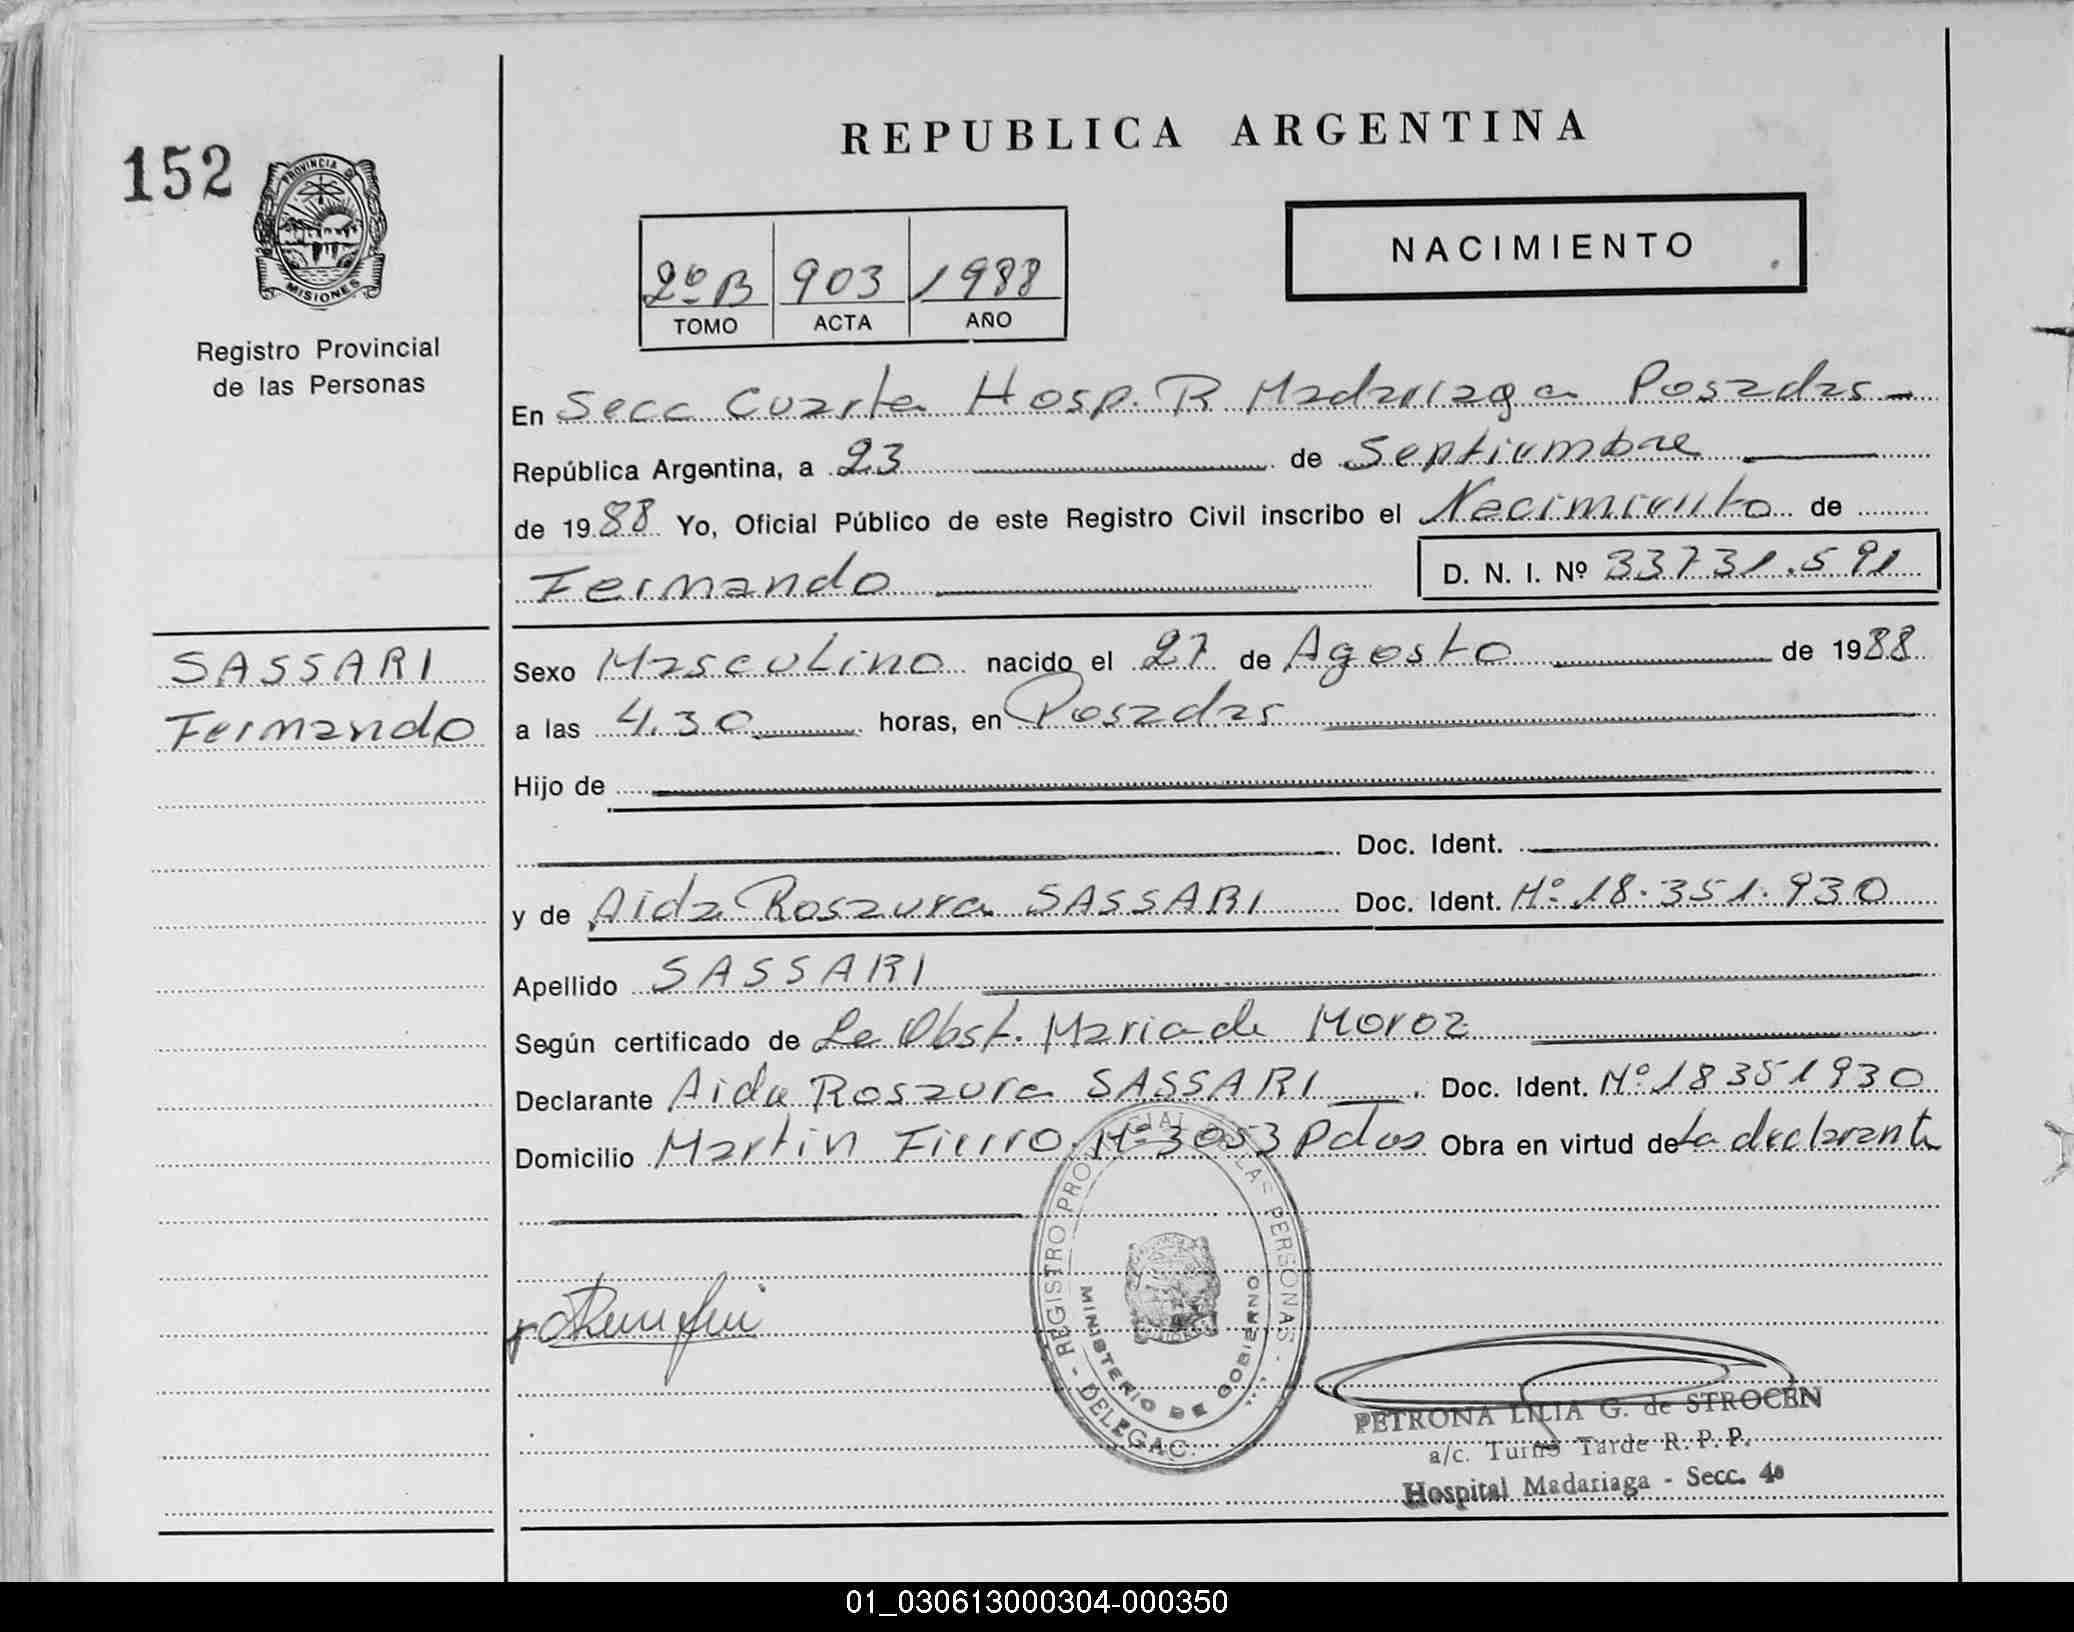 152
PROVINCIA
MISIONES
Registro Provincial
de las Personas
REPUBLICA ARGENTINA
NACIMIENTO
2º B 903 1988
TOMO ACTA AÑO
En Secc Cuarta Hosp. R Madariaga Posadas
República Argentina, a 23 de Septiembre
de 1988 Yo, Oficial Público de este Registro Civil inscribo el Nacimiento de
Fernando D. N. I. Nº 33731.591
SASSARI
Fernando
Sexo Masculino nacido el 27 de Agosto de 1988
a las 4.30 horas, en Posadas
Hijo de
Doc. Ident.
y de Aida Rosaura SASSARI Doc. Ident. Nº 18.351.930
Apellido SASSARI
Según certificado de La Obst. Maria de Moroz
Declarante Aida Rosaura SASSARI Doc. Ident. Nº 18351930
Domicilio Martin Fierro Nº 3053 Pdas Obra en virtud de La declarante
REGISTRO PROVINCIAL DE LAS PERSONAS - DELEGAC.
MINISTERIO DE GOBIERNO
PETRONA LILIA G. de STROCEN
a/c. Turno Tarde R. P. P.
Hospital Madariaga - Secc. 4a
01_030613000304-000350